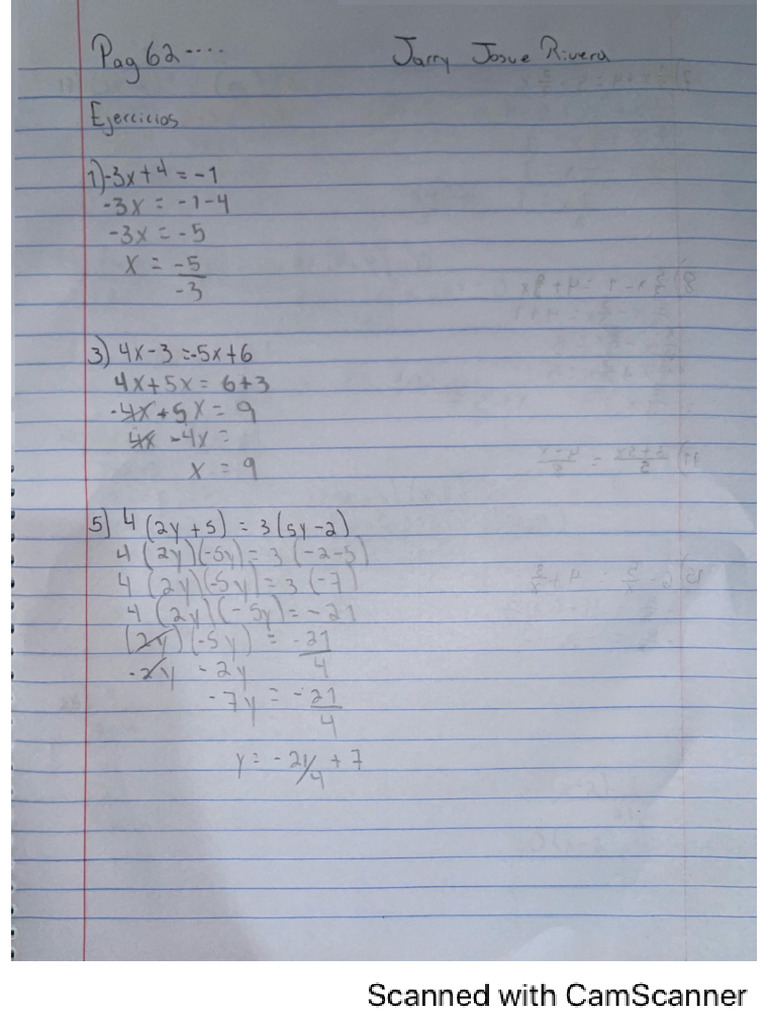 Pag 62 .... Jarry Josue Rivera
Ejercicios
1) -3x + 4 = -1
-3x = -1-4
-3x = -5
x = -5/-3
3) 4x - 3 = -5x + 6
4x + 5x = 6 + 3
-4x + 5x = 9
4x - 4x =
x = 9
5) 4 (2y + 5) = 3 (5y - 2)
4 (2y) (-5y) = 3 (-2 - 5)
4 (2y) (-5y) = 3 (-7)
4 (2y) (-5y) = -21
(2y) (-5y) = -21/4
-2y - 2y
-7y = -21/4
y = -21/4 + 7
Scanned with CamScanner